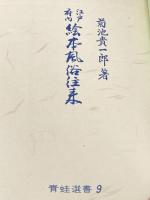 菊池貴一郎著
江戸府内
絵本風俗往来
青蛙選書 9